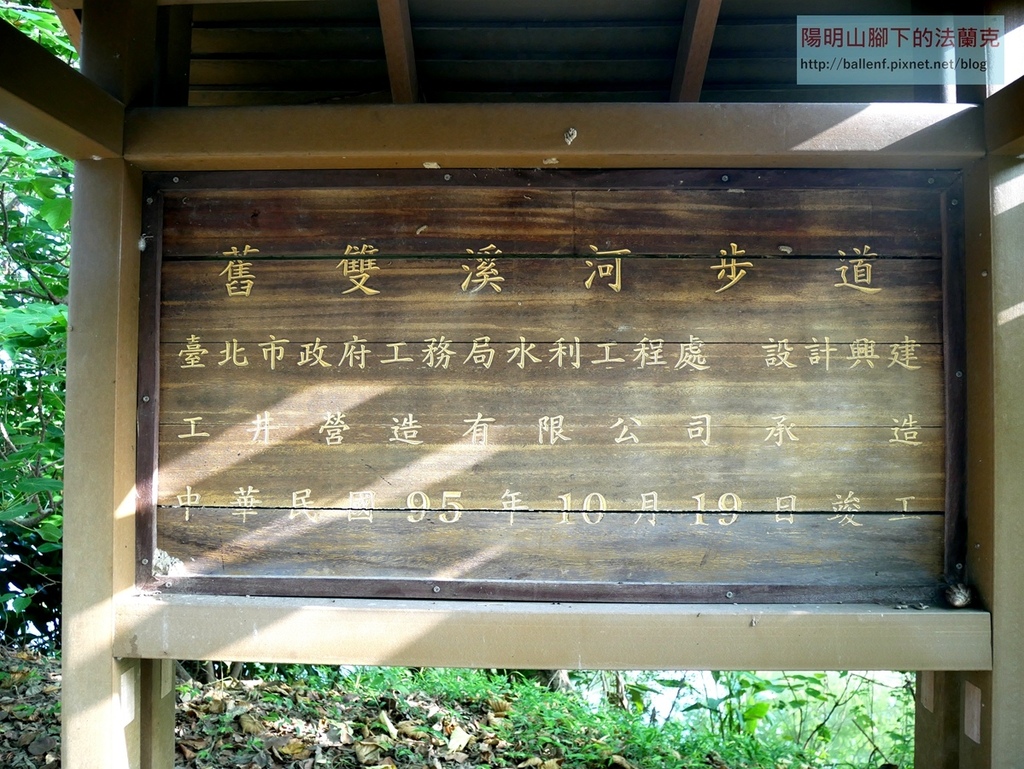 陽明山腳下的法蘭克
http://ballenf.pixnet.net/blog
舊雙溪河步道
臺北市政府工務局水利工程處 設計興建
工井營造有限公司承 造
中華民國95年10月19日竣工